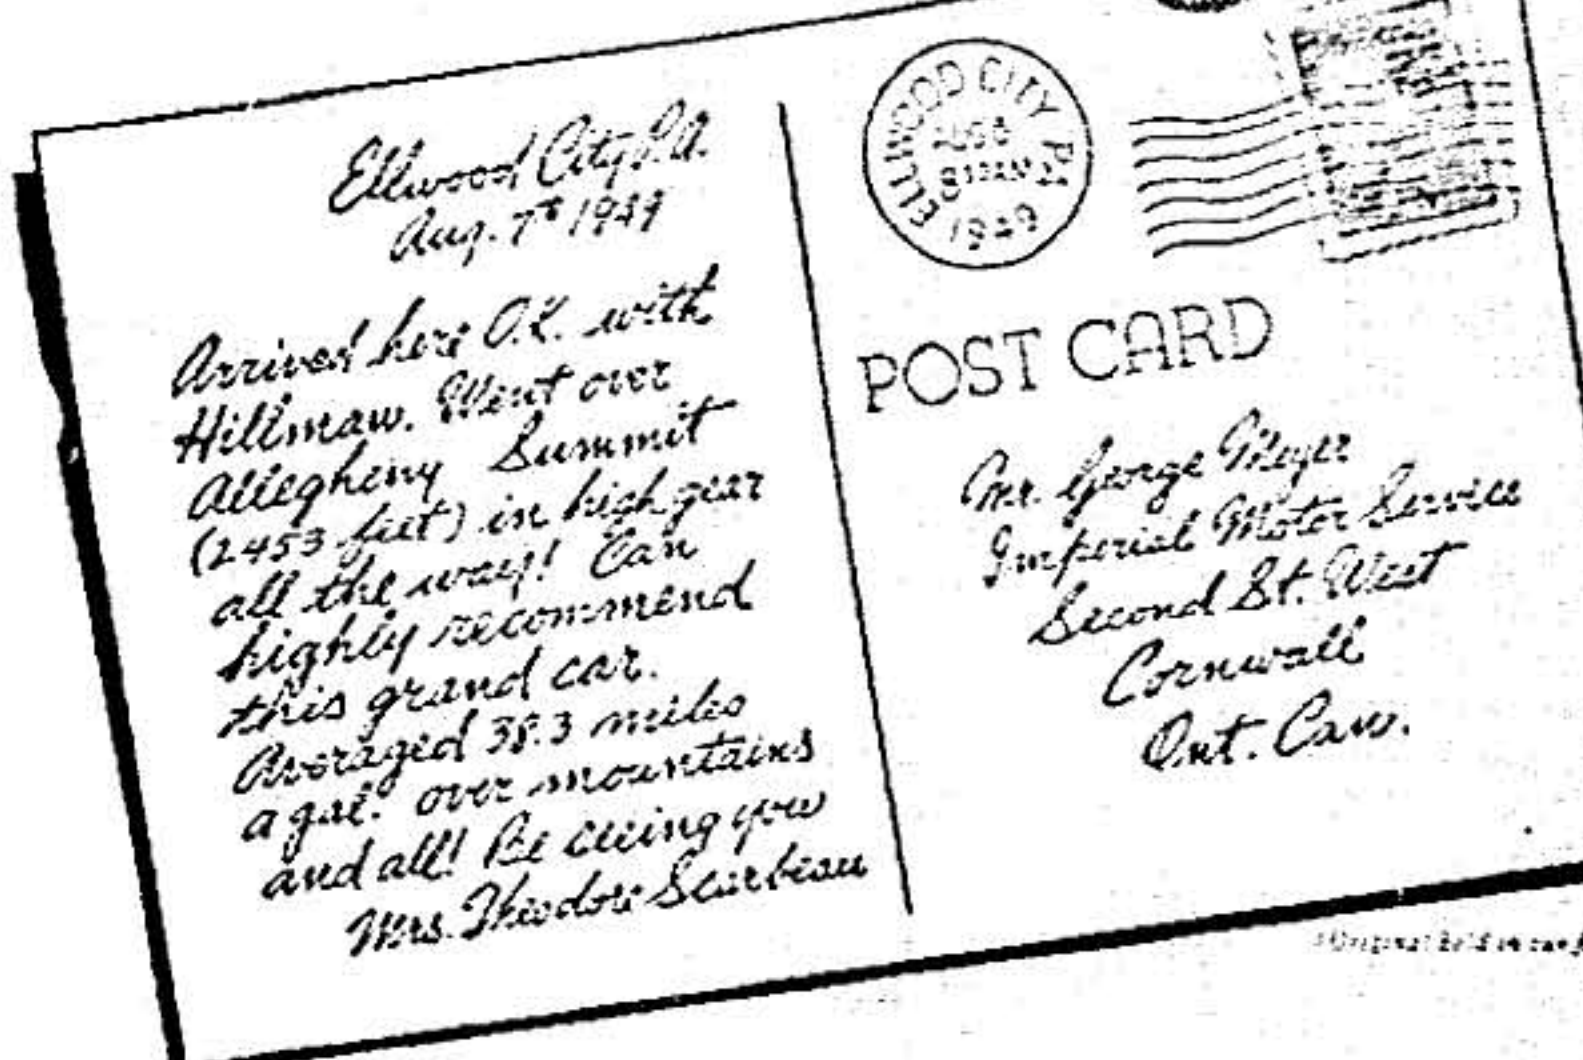 Ellwood City P.A.
Aug. 7th 1949
Arrived here O.K. with
Hillman. Went over
Allegheny Summit
(2453 feet) in high gear
all the way! Can
highly recommend
this grand car.
Averaged 38.3 miles
a gal. over mountains
and all! Be seeing you
Mrs. Theodore Scarbeau
ELLWOOD CITY PA
AUG 8
1949
POST CARD
Mr. George Meyer
Imperial Motor Service
Second St. West
Cornwall
Ont. Can.